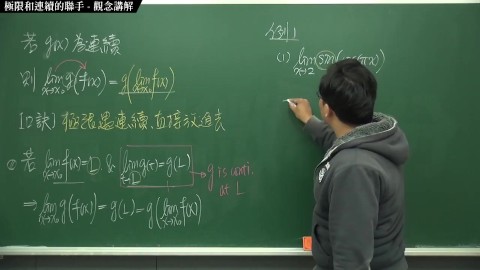 極限和連續的聯手 - 觀念講解
若 g(x) 為連續
則 lim_{x→x₀} g(f(x)) = g(lim_{x→x₀} f(x))
[口訣] 極限遇連續,直接放過去
② 若 lim_{x→x₀} f(x) = L & lim_{x→L} g(x) = g(L) → g is conti. at L
⇒ lim_{x→x₀} g(f(x)) = g(L) = g(lim_{x→x₀} f(x))
例1
(1) lim_{x→2} sin( cos(πx)